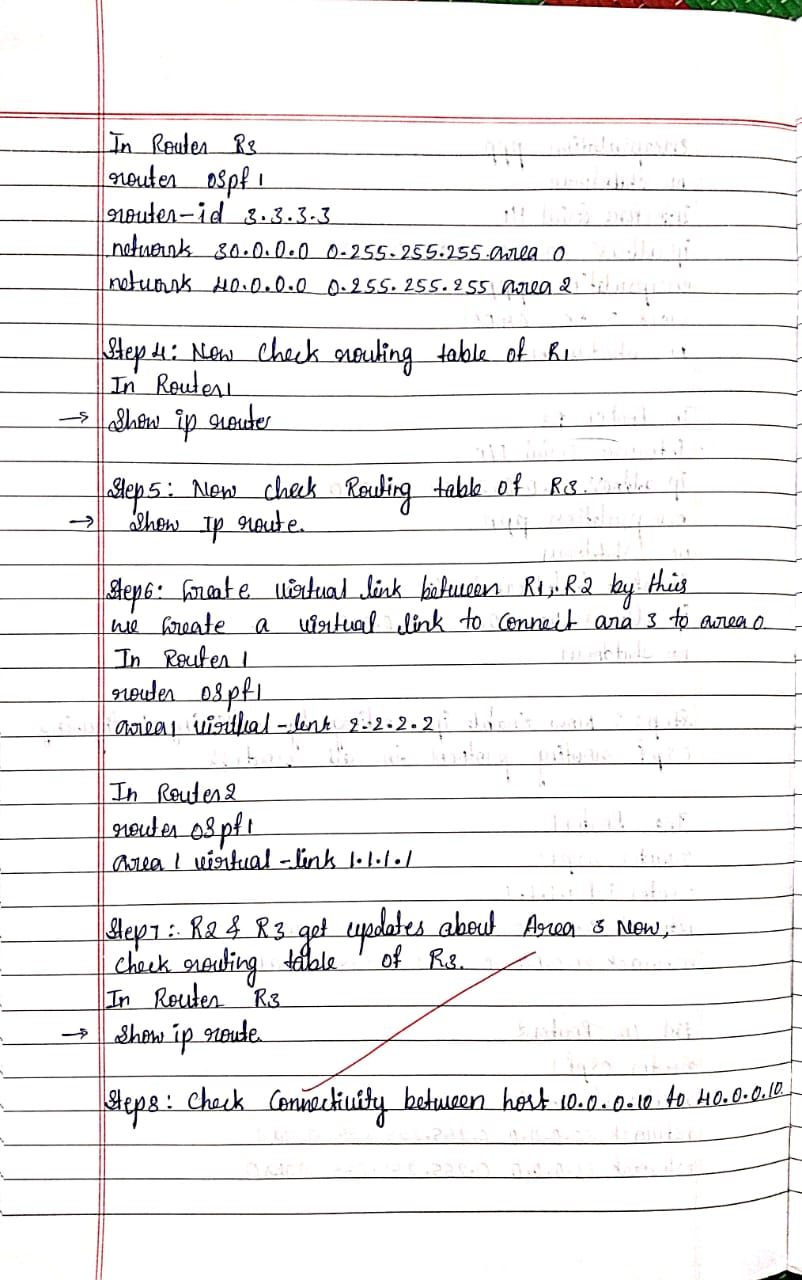 In Router R3
router ospf 1
router-id 3.3.3.3
network 30.0.0.0 0.255.255.255 area 0
network 40.0.0.0 0.255.255.255 area 2
Step 4: Now check routing table of R1
In Router1
→ Show ip router
Step 5: Now check Routing table of R3.
→ Show Ip route.
Step 6: Create virtual link between R1, R2 by this
we create a virtual link to connect ara 3 to area 0
In Router 1
router ospf 1
area 1 virtual-link 2.2.2.2
In Router 2
router ospf 1
area 1 virtual-link 1.1.1.1
Step 7: R2 & R3 get updates about Area 3 Now,
check routing table of R3.
In Router R3
→ Show ip route.
Step 8: Check Connectivity between host 10.0.0.10 to 40.0.0.10.